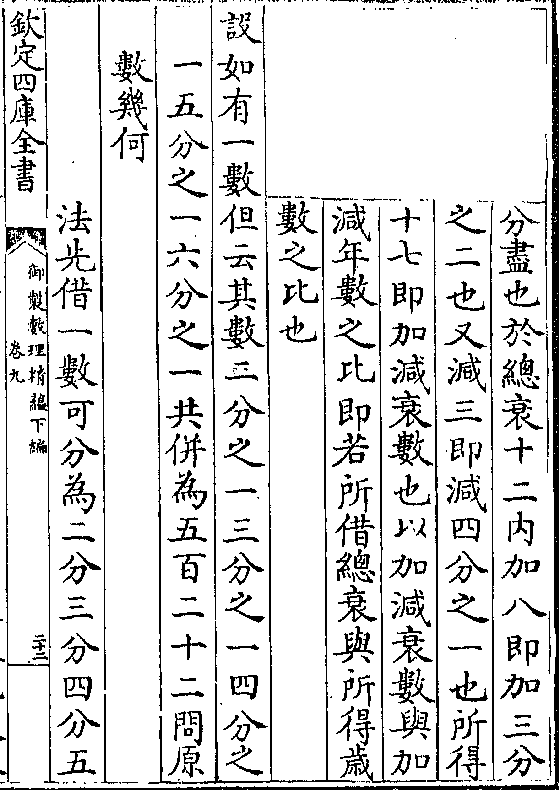 分盡也於總衰十二内加八即加三分
之二也又減三即減四分之一也所得
十七即加減衰數也以加減衰數與加
減年數之比即若所借總衰與所得歲
數之比也
設如有一數但云其數二分之一三分之一四分之
一五分之一六分之一共併為五百二十二問原
數幾何
法先借一數可分為二分三分四分五
欽定四庫全書
御製數理精藴下編
卷九
二十二